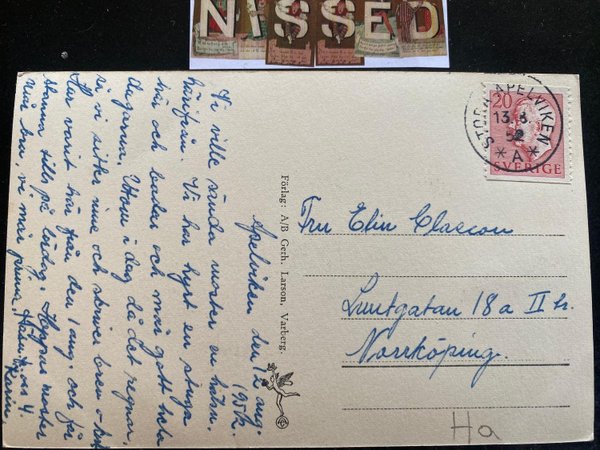 NISSED
Apelviken den 12 aug.
1952.
Vi ville sända moster en hälsn.
härifrån. Vi har hyrt en stuga
här och badar och mår gott hela
dagarna. Utom i dag då det regnar.
så vi sitter inne och skriver brev
Har varit här från den 1 aug. och får
stanna tills på lördag. Hoppas moster
mår bra, vi mår prima. Hälsn. från oss 4.
Karin
Förlag: A/B Gerh. Larson, Varberg.
20
SVERIGE
STORA APELVIKEN
13.8.
52
* A *
Fru Elin Classon
Luntgatan 18 a II tr.
Norrköping.
Ha